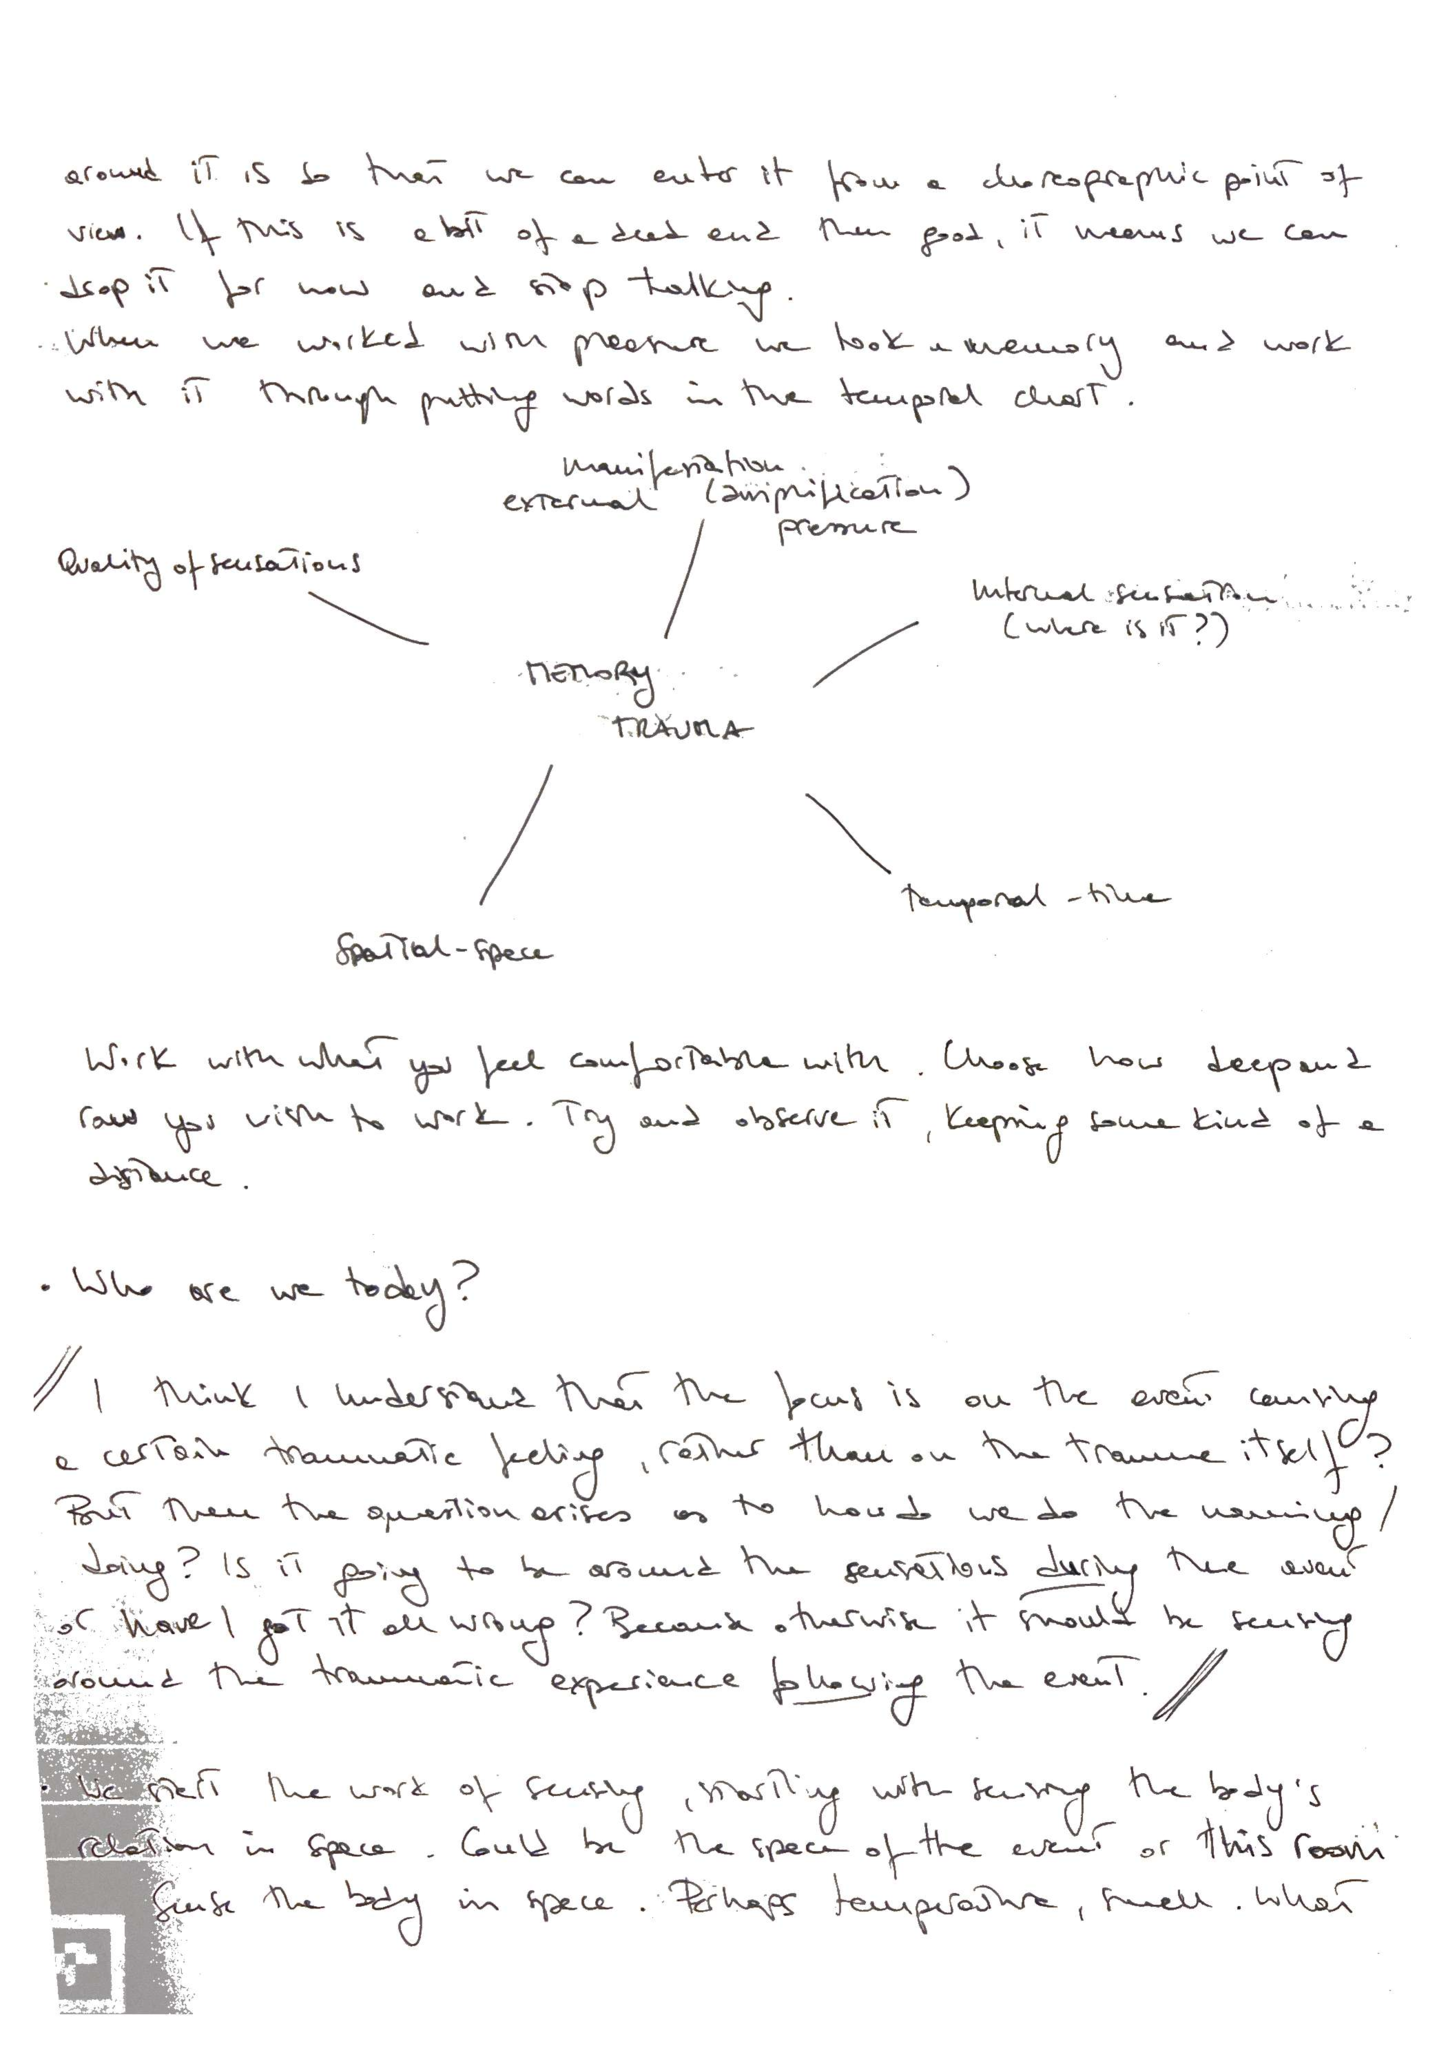 around it is so that we can enter it from a choreographic point of
view. If this is a bit of a dead end then good, it means we can
drop it for now and stop talking.
When we worked with pleasure we took a memory and work
with it through putting words in the temporal chart.
manifestation
external (amplification)
pressure
Quality of sensations
Internal sensation
(where is it?)
MEMORY
TRAUMA
temporal - time
Spatial - space
Work with what you feel comfortable with. Choose how deep and
raw you wish to work. Try and observe it, keeping some kind of a
distance.
. Who are we today?
// I think I understand that the focus is on the event causing
a certain traumatic feeling, rather than on the trauma itself?
But then the question arises as to how do we do the naming/
doing? Is it going to be around the sensations during the event
or have I got it all wrong? Because otherwise it should be sensing
around the traumatic experience following the event. //
. We start the work of sensing, starting with sensing the body's
relation in space. Could be the space of the event or this room.
Sense the body in space. Perhaps temperature, smell. What